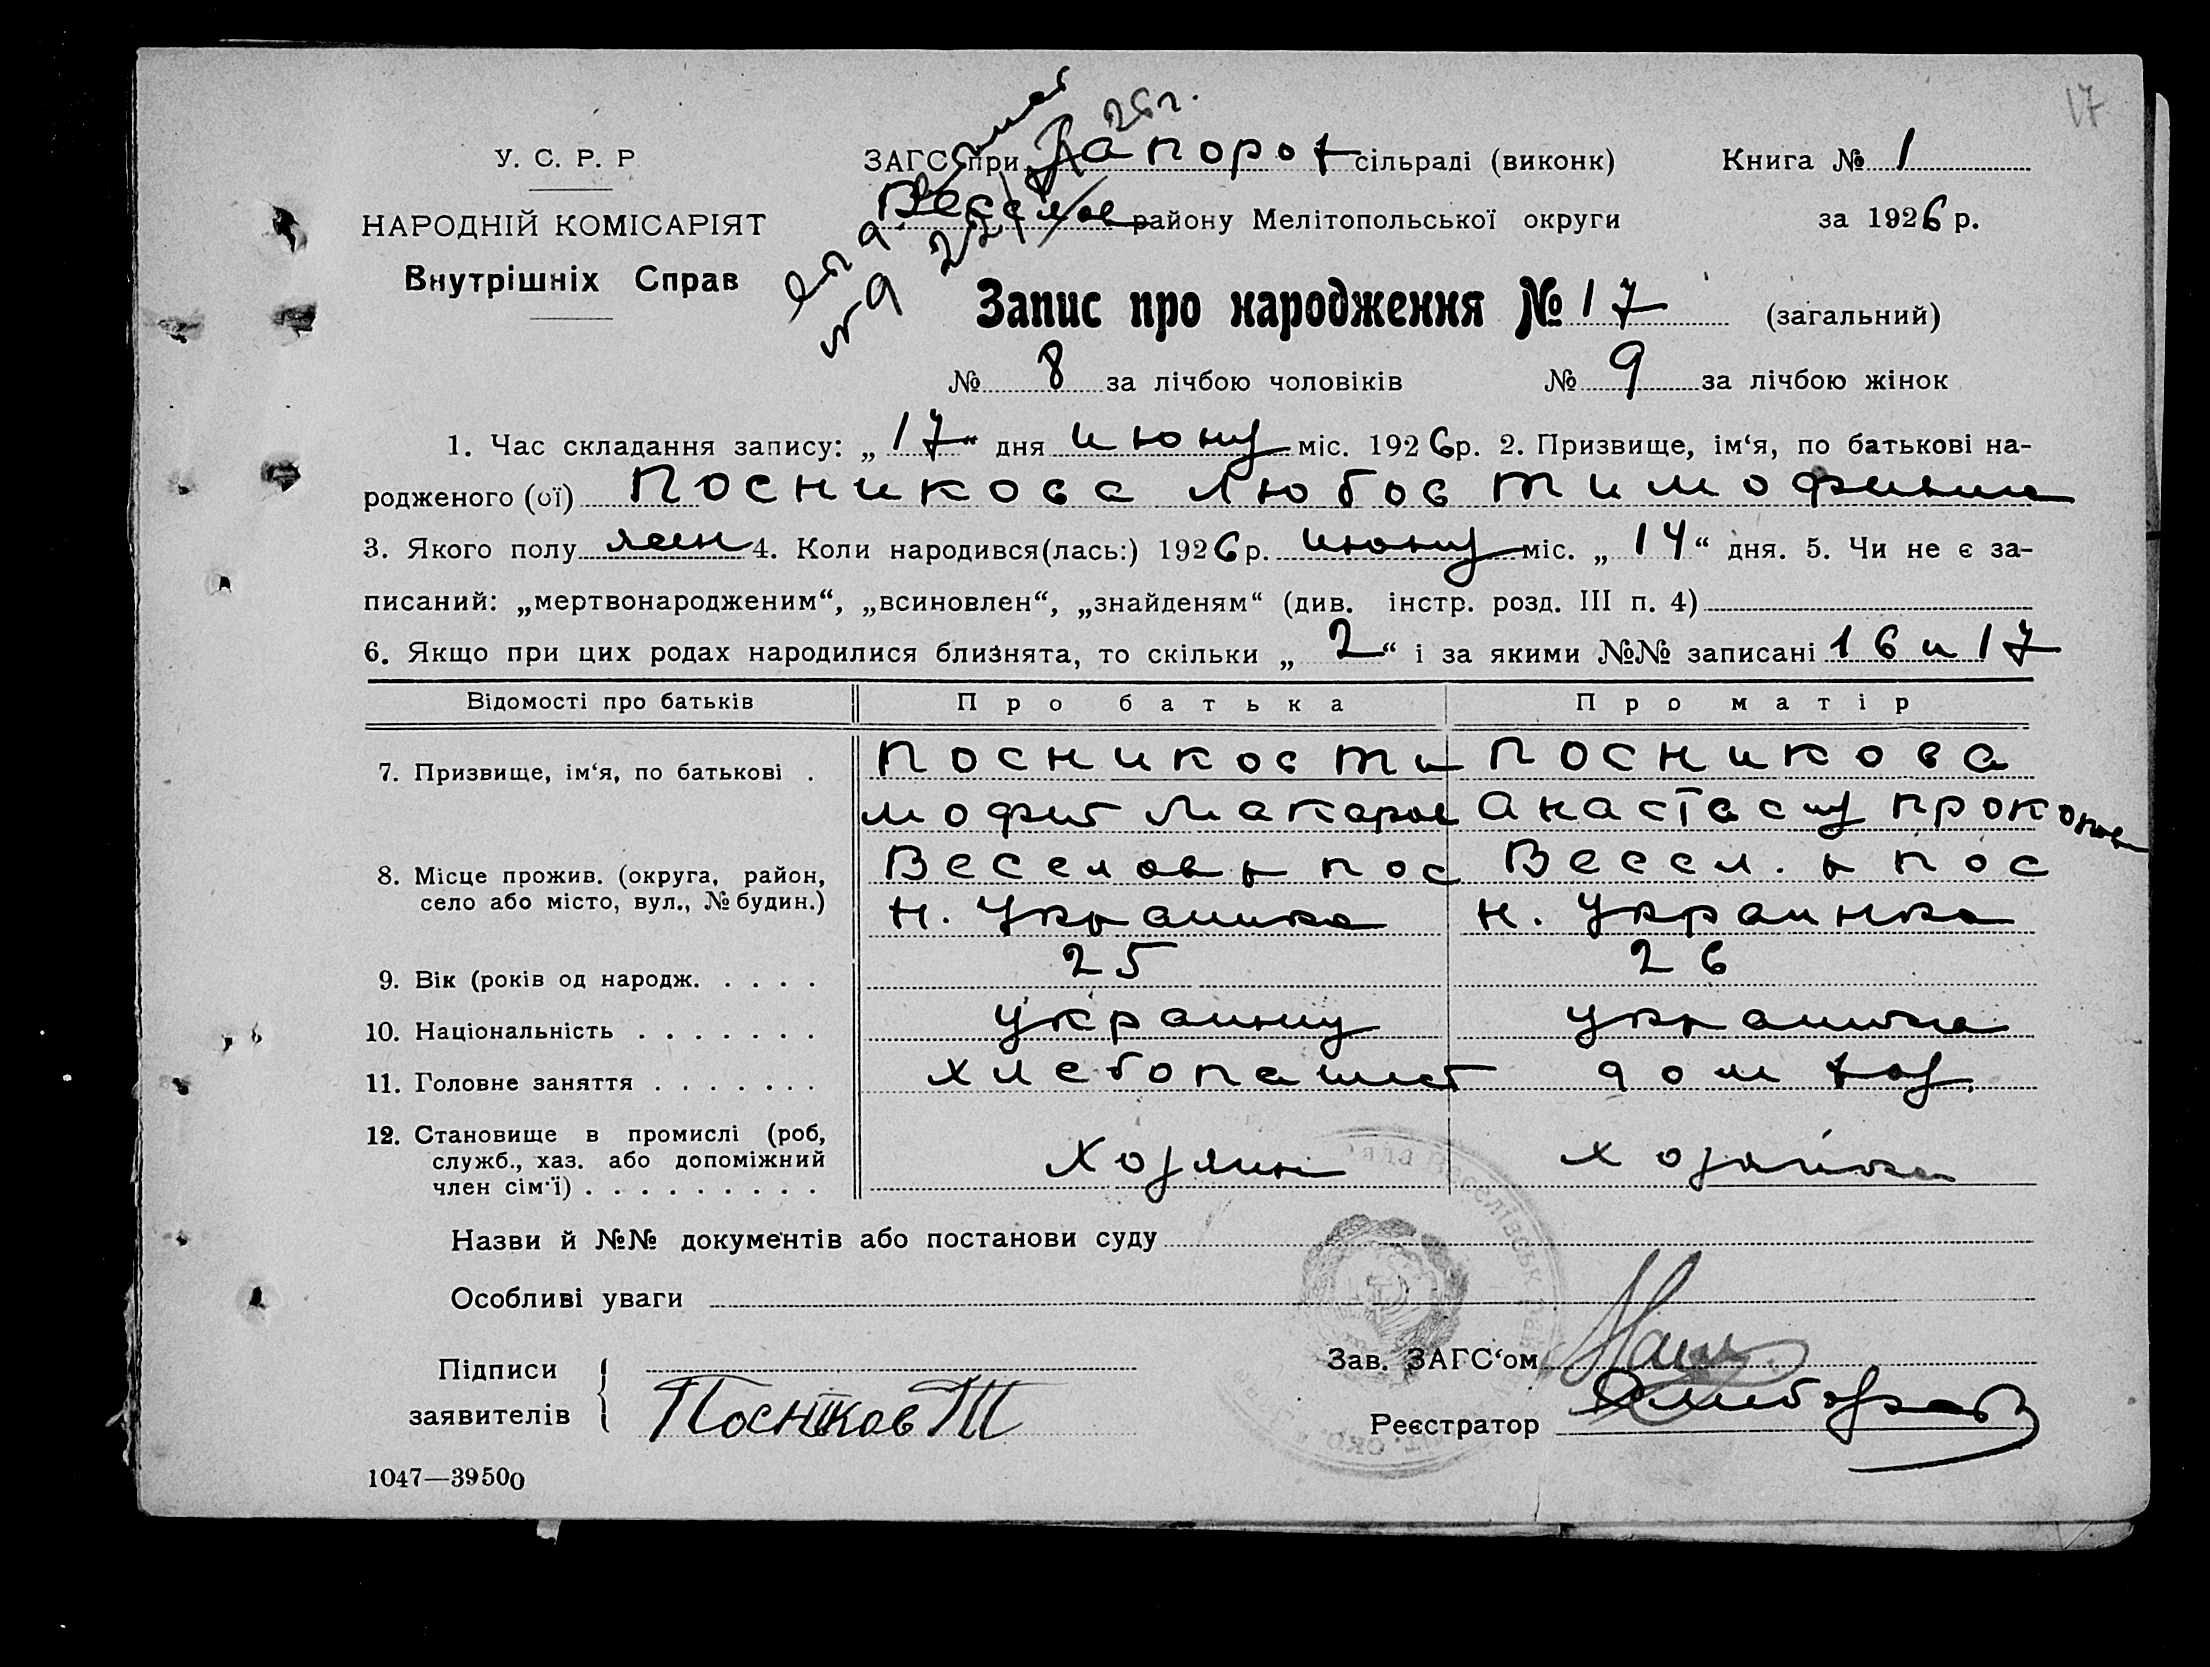 17
У. С. Р. Р
ЗАГС при Запорож сільраді (виконк)
Книга № 1
НАРОДНІЙ КОМІСАРІЯТ
Весел районy Мелітопольської округи
за 1926 р.
Внутрішніх Справ
Запис про народження № 17 (загальний)
№ 8 за лічбою чоловіків № 9 за лічбою жінок
1. Час складання запису: „17“ дня июня міс. 1926р. 2. Призвище, ім‘я, по батькові на-
родженого (ої) Посникова Любов Тимофиевна
3. Якого полу жен 4. Коли народився(лась:) 1926р. июня міс. „14“ дня. 5. Чи не є за-
писаний: „мертвонародженим“, „всиновлен“, „знайденям“ (див. інстр. розд. III п. 4)
6. Якщо при цих родах народилися близнята, то скільки „2“ і за якими №№ записані 16 и 17
Відомості про батьків Про батька Про матір
7. Призвище, ім‘я, по батькові . Посников Ти Посникова
мофит Макаров Анастасия Прокопов
8. Місце прожив. (округа, район, Веселов р пос Весел. р пос
село або місто, вул., № будин.) Н. Украинка Н. Украинка
9. Вік (років од народж. . . . . 25 26
10. Національність . . . . . . . украинец украинка
11. Головне заняття . . . . . . . хлебопашест дом хоз.
12. Становище в промислі (роб,
служб., хаз. або допоміжний Хозяин хозяйка
член сім‘ї) . . . . . . . . .
Назви й №№ документів або постанови суду
Особливі уваги
Підписи
Зав. ЗАГС‘ом
заявителів Посніков Т
Реєстратор
1047—39500